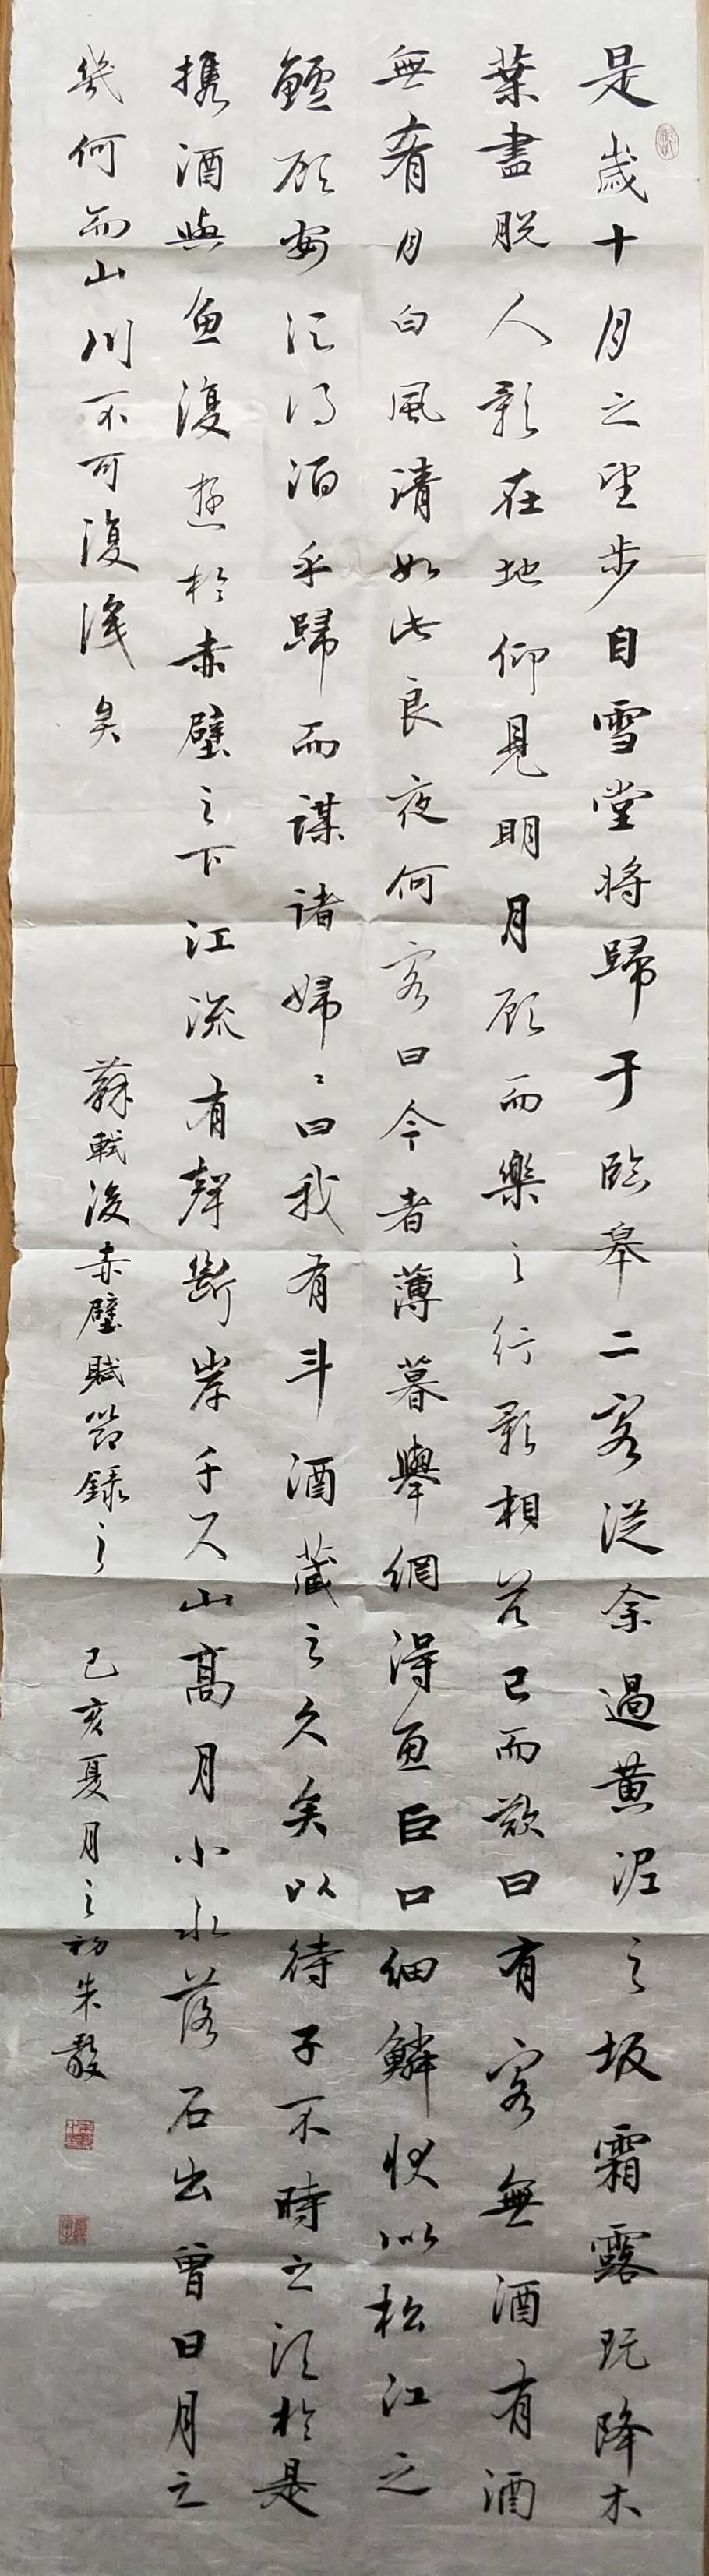 是歲十月之望步自雪堂將歸于臨皋二客從余過黃泥之坂霜露既降木
葉盡脫人影在地仰見明月顧而樂之行歌相答已而歎曰有客無酒有酒
無肴月白風清如此良夜何客曰今者薄暮舉網得魚巨口細鱗狀似松江之
鱸顧安所得酒乎歸而謀諸婦〻曰我有斗酒藏之久矣以待子不時之須於是
攜酒與魚復遊於赤壁之下江流有聲斷岸千尺山高月小水落石出曾日月之
幾何而山川不可復識矣
蘇軾後赤壁賦節錄之
己亥夏月之初朱毅